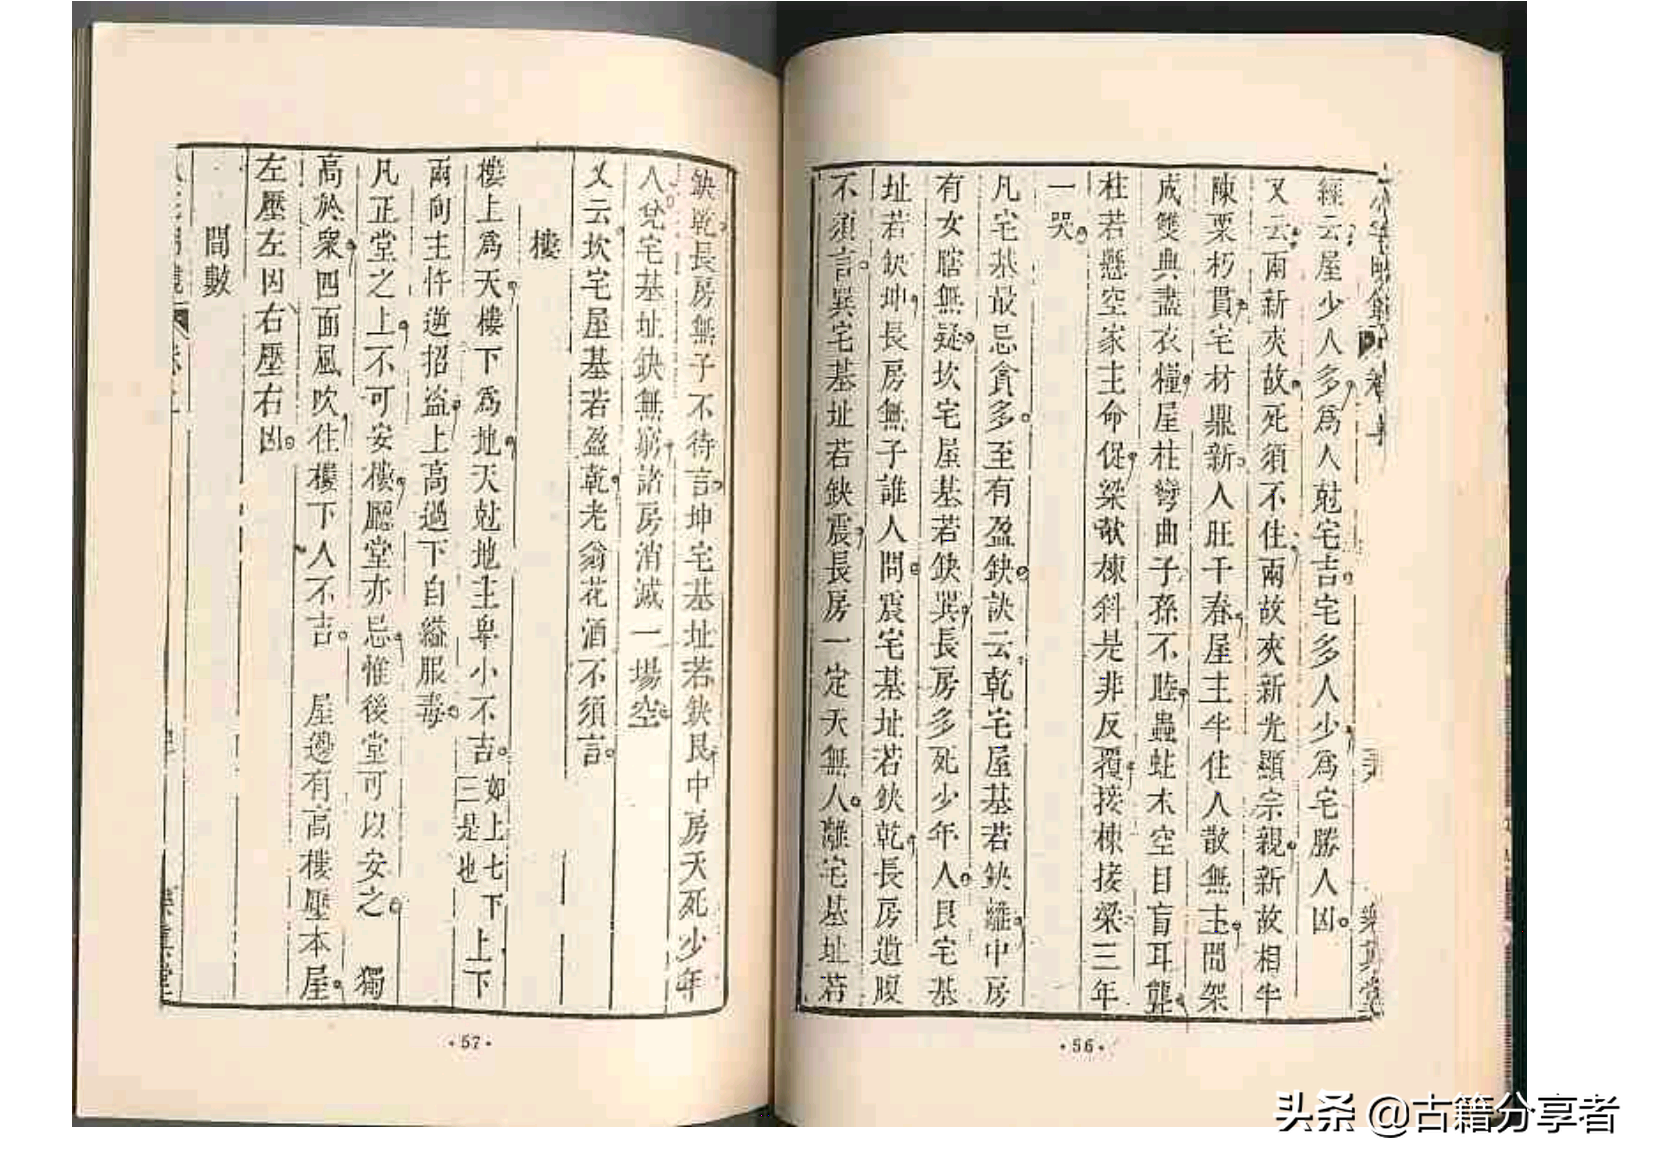 經云屋少人多為人尅宅吉宅多人少為宅勝人凶
又云兩新夾故死須不住兩故夾新光顯宗親新故相半
陳粟朽貫宅材鼎新人旺千春屋主半住人散無主間架
成雙典盡衣糧屋柱彎曲子孫不睦蟲蛀木空目盲耳聾
柱若懸空家主命促梁欹棟斜是非反覆接棟接梁三年
一哭
凡宅基最忌貪多至有盈缺訣云乾宅屋基若缺離中房
有女瞎無疑坎宅屋基若缺巽長房多死少年人艮宅基
址若缺坤長房無子誰人問震宅基址若缺乾長房遺腹
不須言巽宅基址若缺震長房一定夭無人離宅基址若
·56·
缺乾長房無子不待言坤宅基址若缺艮中房夭死少年
人兌宅基址缺無窮諸房消滅一場空
又云坎宅屋基若盈乾老翁花酒不須言
樓
樓上為天樓下為地天尅地主卑小不吉如上七下三是也 上下
兩向主忤逆招盜上高過下自縊服毒
凡正堂之上不可安樓廳堂亦忌惟後堂可以安之 獨
高於衆四面風吹住樓下人不吉 屋邊有高樓壓本屋
左壓左凶右壓右凶
間數
·57·
头条 @古籍分享者